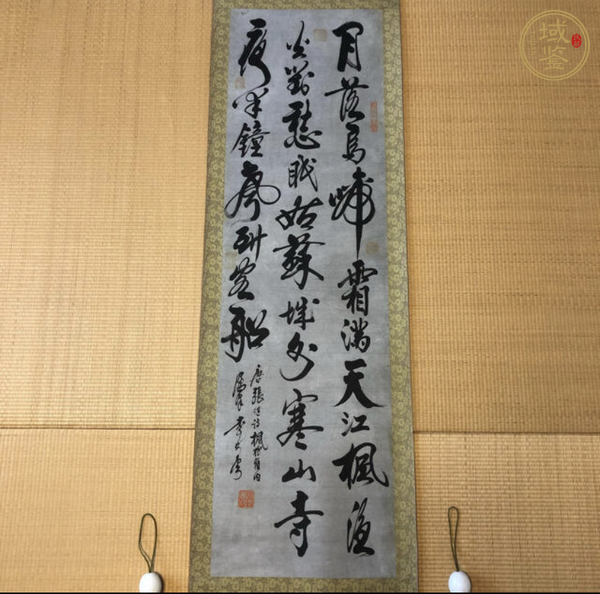 月落烏啼霜滿天江楓漁
火對愁眠姑蘇城外寒山寺
夜半鐘聲到客船
唐張繼詩楓橋夜泊
域鉴